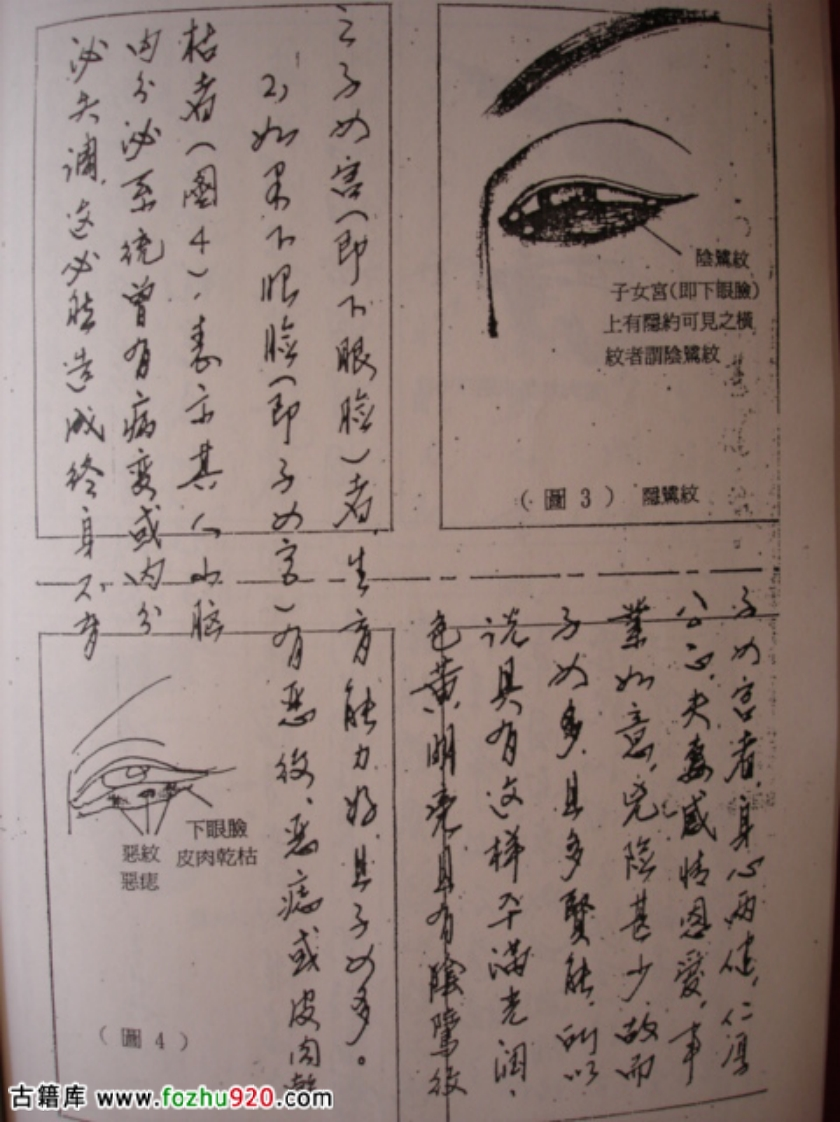 陰騭紋
子女宮(即下眼臉)
上有隱約可見之橫
紋者謂陰騭紋
(圖3) 隱騭紋
子女宫者,身心两健,仁厚
公正,夫妻感情恩愛,事
業如意,兇險甚少,故而
子女多,且多賢能,所以
说具有这様平满光润、
色黄明亮且有陰騭紋
之子女宫(即下眼臉)者,生育能力好,且子女多。
2)如果下眼臉(即子女宫)有恶紋、恶痣或皮肉乾
枯者(圖4),表示其人小脑
内分泌系統曾有病变或内分
泌失调,这必然造成終身不育
下眼臉
皮肉乾枯
惡紋
惡痣
(圖4)
古籍库 www.fozhu920.com